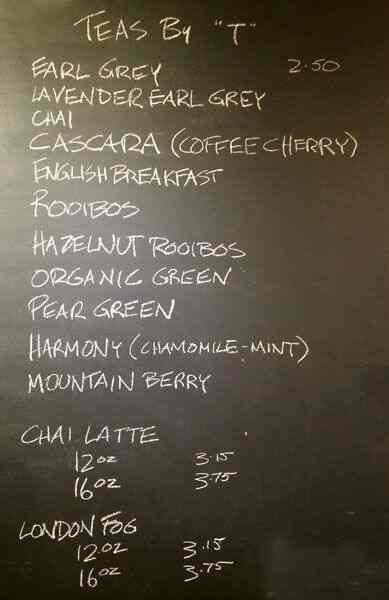 TEAS By "T"
EARL GREY 2.50
LAVENDER EARL GREY
CHAI
CASCARA (COFFEE CHERRY)
ENGLISH BREAKFAST
ROOIBOS
HAZELNUT ROOIBOS
ORGANIC GREEN
PEAR GREEN
HARMONY (CHAMOMILE-MINT)
MOUNTAIN BERRY
CHAI LATTE
12oz 3.15
16oz 3.75
LONDON FOG
12oz 3.15
16oz 3.75